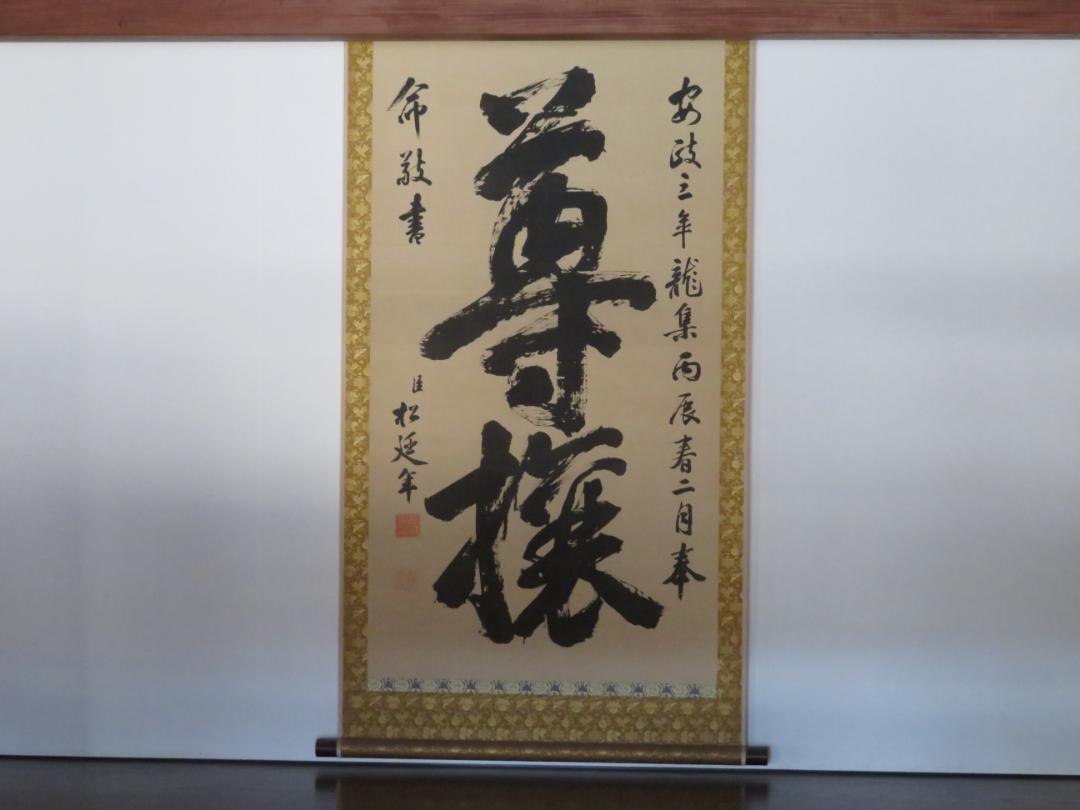 安政三年龍集丙辰春二月奉
尊攘
命敬書
臣松延年